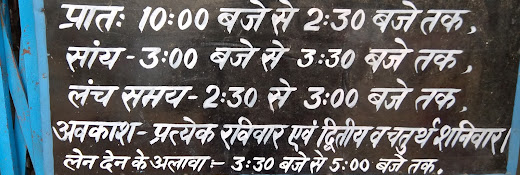 प्रातः 10:00 बजे से 2:30 बजे तक,
सांय - 3:00 बजे से 3:30 बजे तक,
लंच समय - 2:30 से 3:00 बजे तक,
अवकाश - प्रत्येक रविवार एवं द्वितीय व चतुर्थ शनिवार।
लेन देन के अलावा :- 3:30 बजे से 5:00 बजे तक.